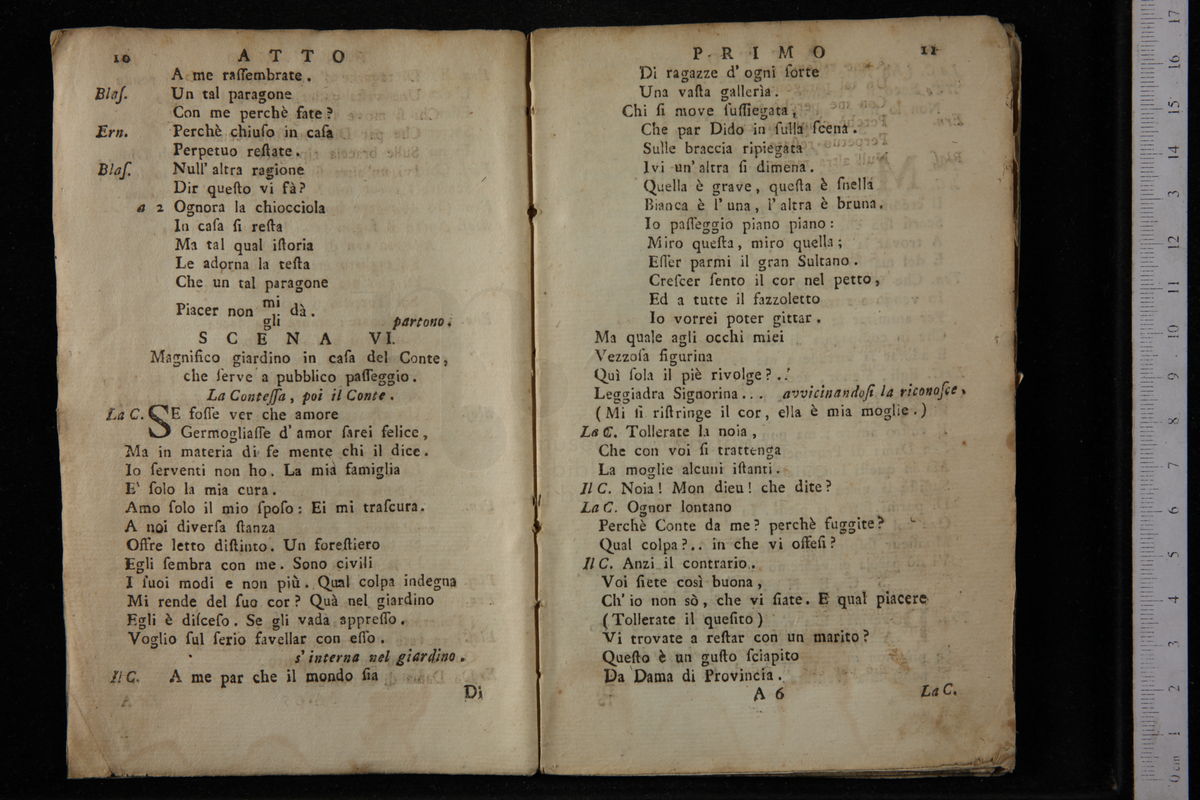 10 ATTO
A me raſſembrate.
Blaſ. Un tal paragone
Con me perchè fate?
Ern. Perchè chiuſo in caſa
Perpetuo reſtate.
Blaſ. Null' altra ragione
Dir queſto vi fà?
a 2 Ognora la chiocciola
In caſa ſi reſta
Ma tal qual iſtoria
Le adorna la teſta
Che un tal paragone
Piacer non mi dà.
gli partono.
SCENA VI.
Magnifico giardino in caſa del Conte,
che ſerve a pubblico paſſeggio.
La Conteſſa, poi il Conte.
La C. SE foſſe ver che amore
Germogliaſſe d' amor ſarei felice,
Ma in materia di fe mente chi il dice.
Io ſerventi non ho. La mia famiglia
E' ſolo la mia cura.
Amo ſolo il mio ſpoſo: Ei mi traſcura.
A noi diverſa ſtanza
Offre letto diſtinto. Un foreſtiero
Egli ſembra con me. Sono civili
I ſuoi modi e non più. Qual colpa indegna
Mi rende del ſuo cor? Quà nel giardino
Egli è diſceſo. Se gli vada appreſſo.
Voglio ſul ſerio favellar con eſſo.
s' interna nel giardino.
Il C. A me par che il mondo ſia
Di
PRIMO 11
Di ragazze d' ogni ſorte
Una vaſta gallerìa.
Chi ſi move ſuſſiegata,
Che par Dido in ſulla ſcena.
Sulle braccia ripiegata
Ivi un' altra ſi dimena.
Quella è grave, queſta è ſnella
Bianca è l' una, l' altra è bruna.
Io paſſeggio piano piano:
Miro queſta, miro quella;
Eſſer parmi il gran Sultano.
Creſcer ſento il cor nel petto,
Ed a tutte il fazzoletto
Io vorrei poter gittar.
Ma quale agli occhi miei
Vezzoſa figurina
Quì ſola il piè rivolge?..
Leggiadra Signorina... avvicinandoſi la riconoſce,
(Mi ſi riſtringe il cor, ella è mia moglie.)
La C. Tollerate la noia,
Che con voi ſi trattenga
La moglie alcuni iſtanti.
Il C. Noia! Mon dieu! che dite?
La C. Ognor lontano
Perchè Conte da me? perchè fuggite?
Qual colpa?.. in che vi offeſi?
Il C. Anzi il contrario.
Voi ſiete così buona,
Ch' io non sò, che vi ſiate. E qual piacere
(Tollerate il queſito)
Vi trovate a reſtar con un marito?
Queſto è un guſto ſciapito
Da Dama di Provincia.
A 6 La C.